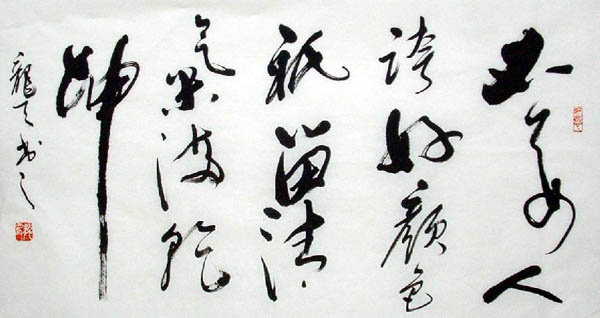 不要人
誇好顔色
祇留清
氣滿乾
坤
龍天书之